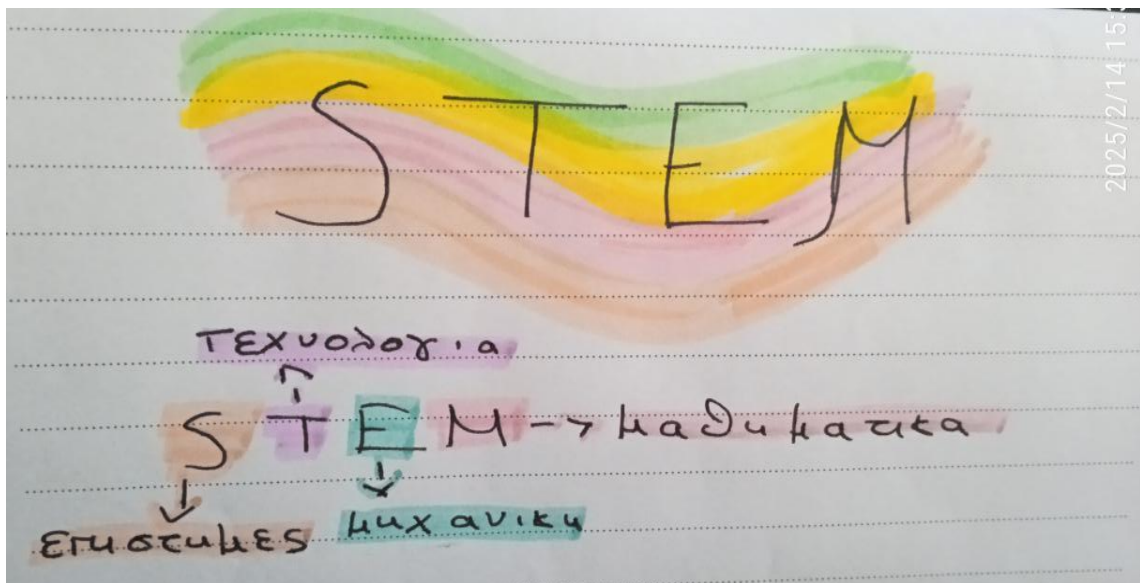 STEM
2025/2/14 15:3
τεχνολογια
STEM -> μαθηματικα
επιστημες μηχανικη